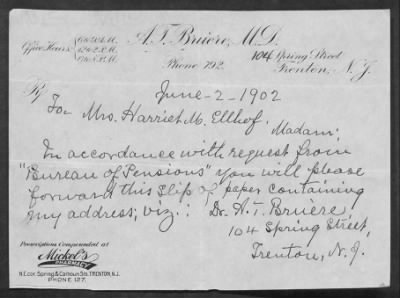 A. T. Bruère, M.D.
Office Hours:
Phone 792.
104 Spring Street
Trenton, N. J.
June - 2 - 1902
To Mrs. Harriet M. Ellhof.
Madam;
In accordance with request from
"Bureau of Pensions" you will please
forward this slip of paper containing
my address; viz.: Dr. A. T. Bruère,
104 Spring Street,
Trenton, N. J.
Prescriptions Compounded at
Mickel's
PHARMACY
N.E. cor. Spring & Calhoun Sts. TRENTON, N.J.
PHONE 127.